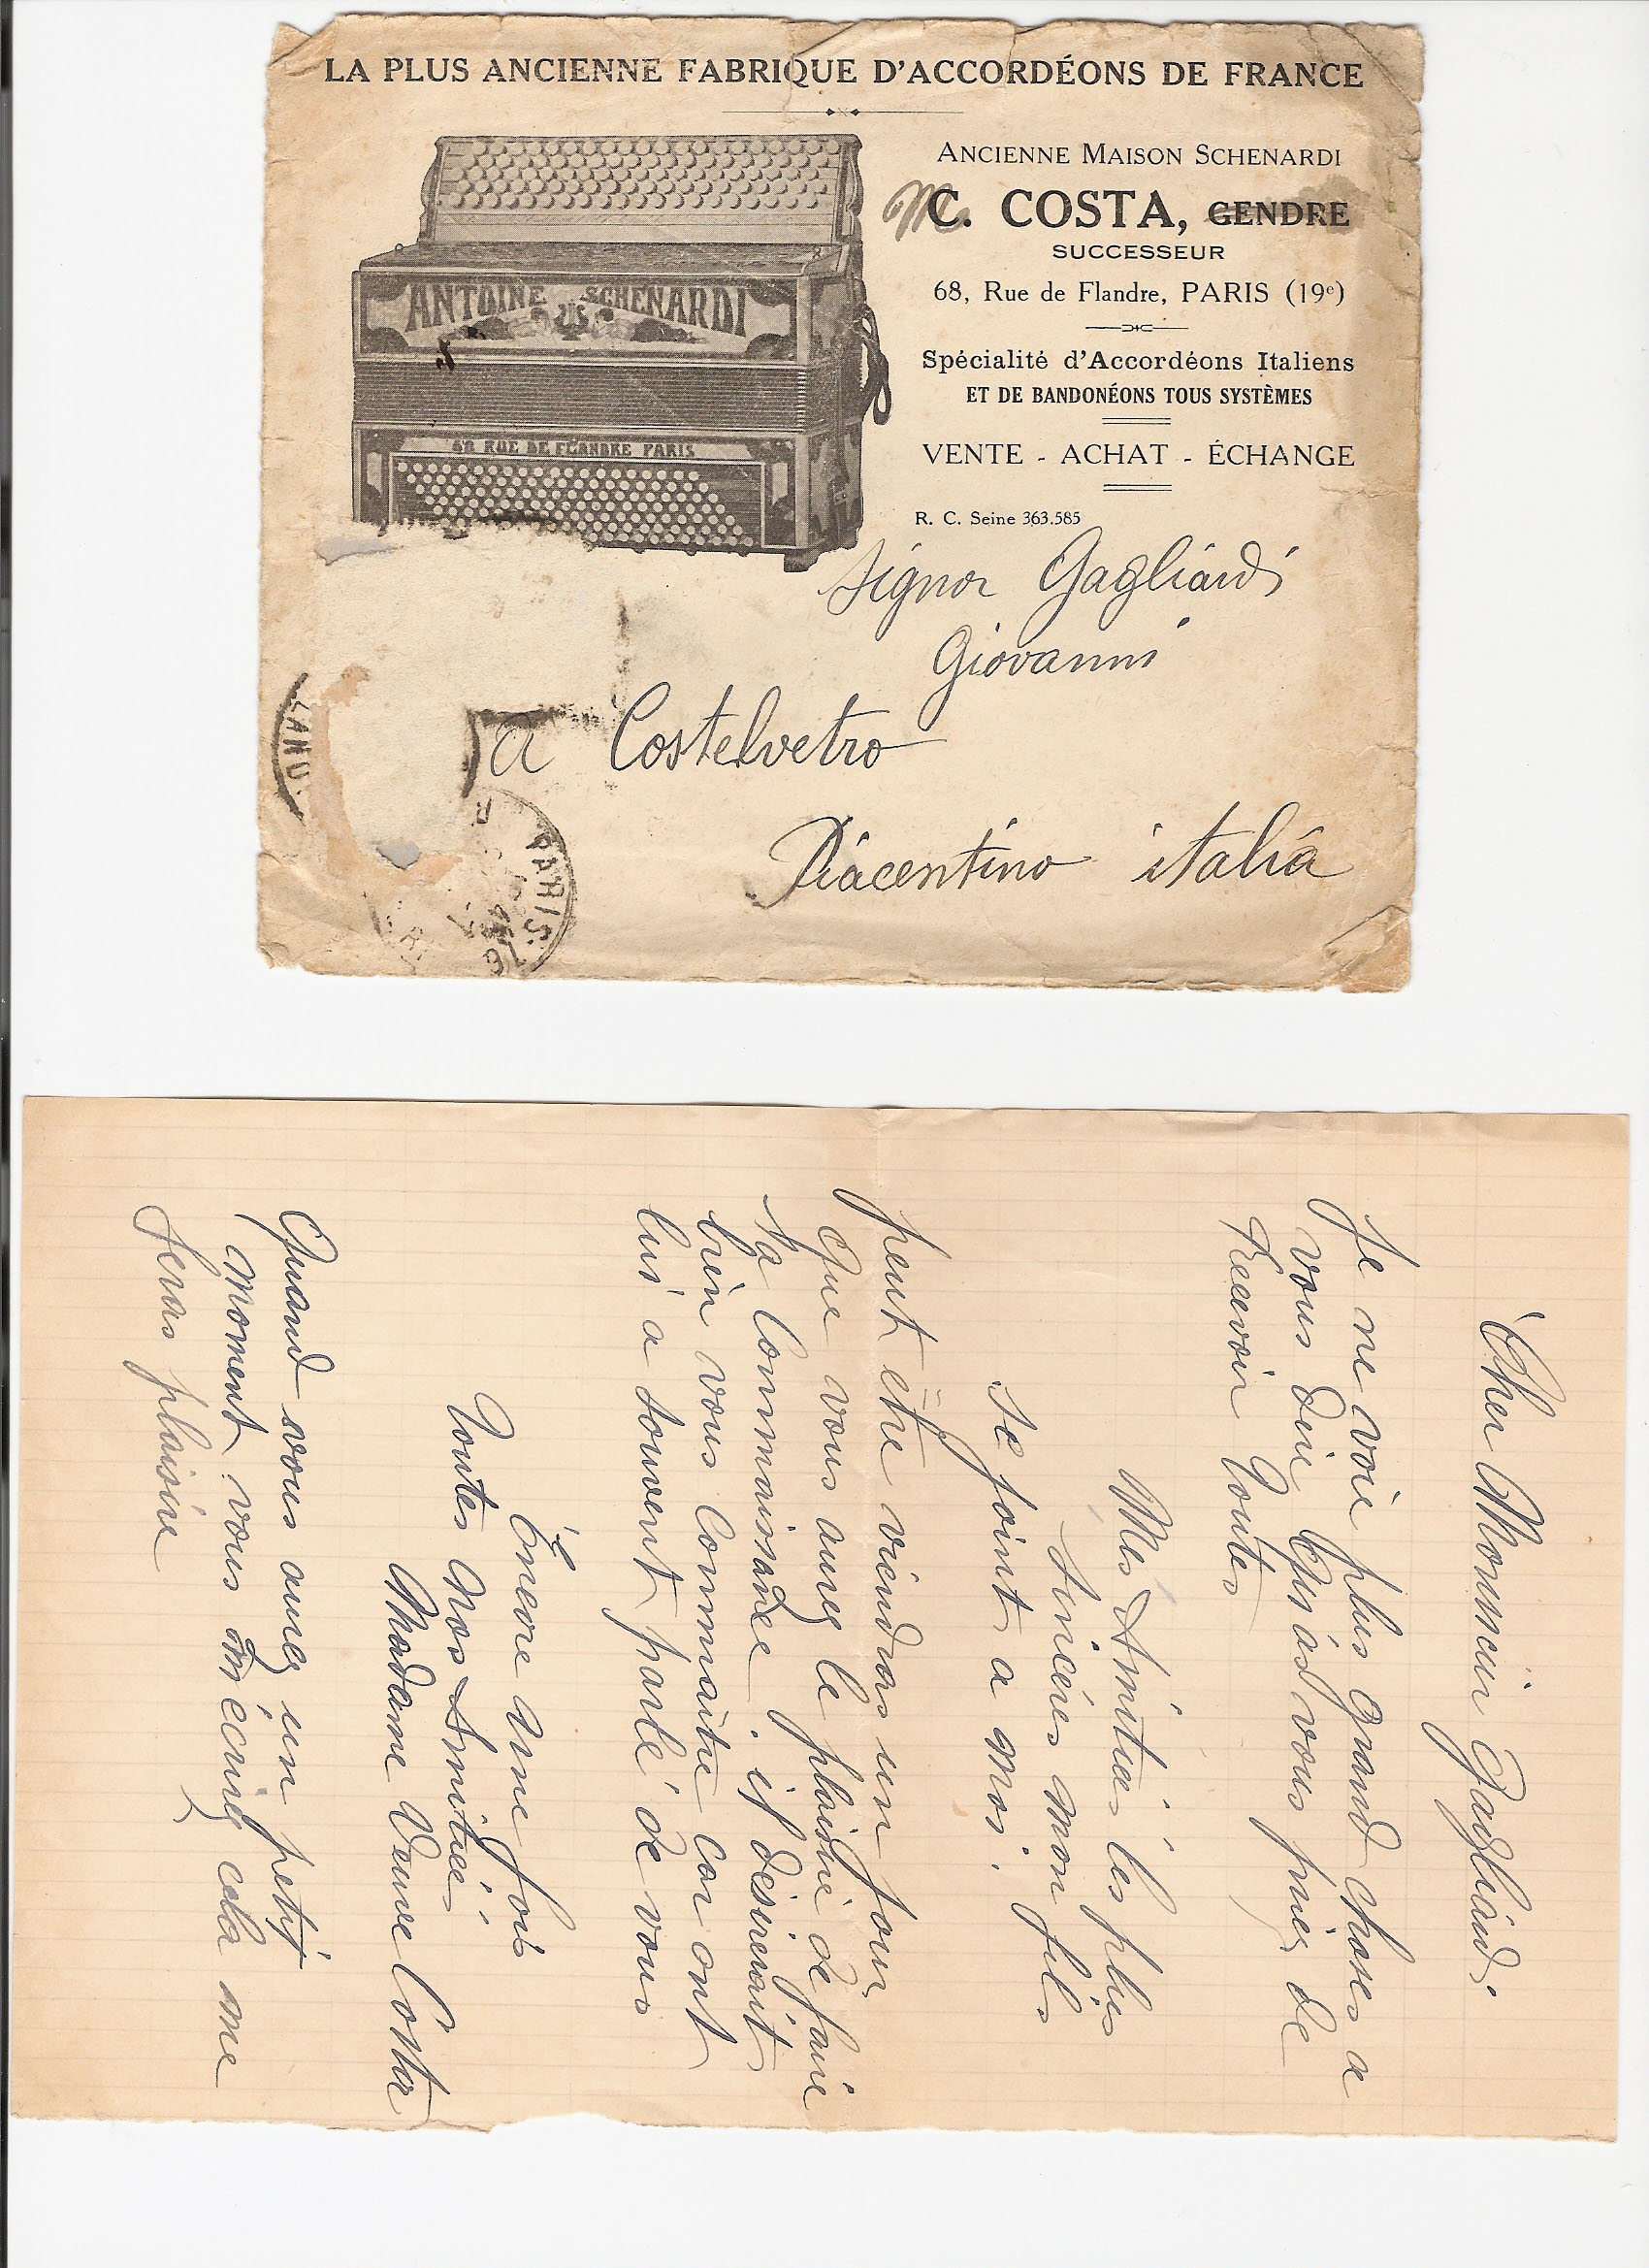 LA PLUS ANCIENNE FABRIQUE D'ACCORDÉONS DE FRANCE
ANCIENNE MAISON SCHENARDI
M C. COSTA, GENDRE
SUCCESSEUR
68, Rue de Flandre, PARIS (19e)
Spécialité d'Accordéons Italiens
ET DE BANDONÉONS TOUS SYSTÈMES
VENTE - ACHAT - ÉCHANGE
R. C. Seine 363.585
ANTOINE SCHENARDI
68 RUE DE FLANDRE PARIS
Signor Gagliardi
Giovanni
a Costelvetro
Piacentino italia
PARIS
Cher Monsieur Gagliardi.
Je ne voie plus grand choses a
vous dire qu'as vous prier de
Recevoir Toutes
Mes Amitiés les plus
sincéres mon fils
se joint a moi.
peut être viendras un jour
que vous aurez le plaisire de faire
Sa Connaissance. il desirerait
bien vous Connaitre car ont
lui a souvent parlé de vous
Encore une fois
Toutes Nos Amitiées.
Madame Veuve Costa
Quand vous aurez un petit
moment vous m'écrirez cela me
feras plaisire